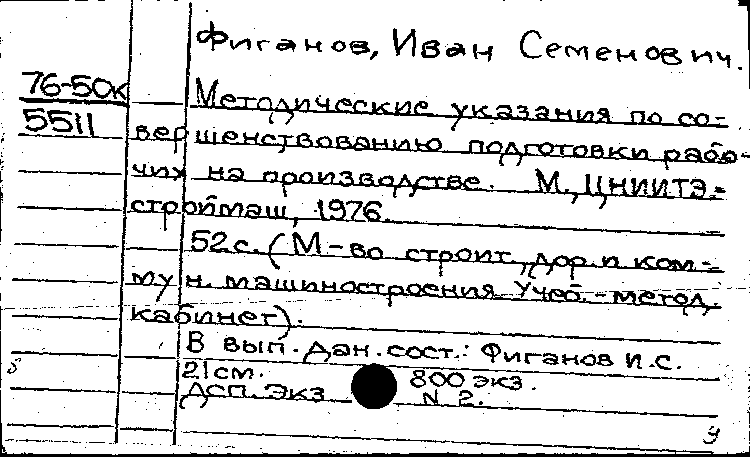 Фиганов, Иван Семенович.
76-50к
5511
Методические указания по со-
вершенствованию подготовки рабо-
чих на производстве. М., ЦНИИТЭ-
строймаш, 1976.
52 с. (М-во строит., дор. и ком-
мун. машиностроения. Учеб.-метод.
кабинет).
В вып. дан. сост.: Фиганов И.С.
21 см. 800 экз.
ДСП. Экз N 2.